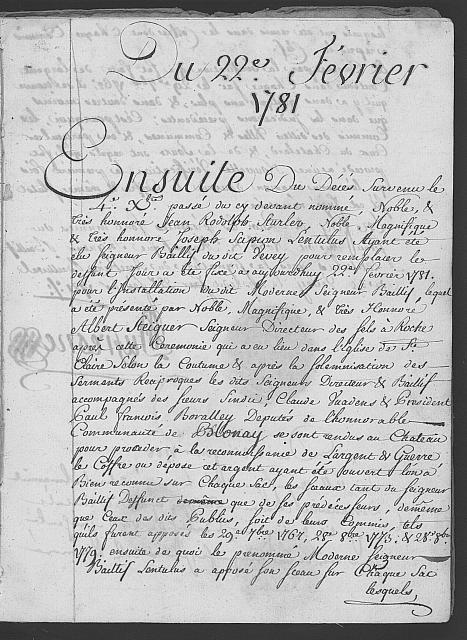 Du 22e. Février
1781
Ensuite Du Décés Survenu le
4e. Xbre passé du cy devant nommé, Noble, &
très honnoré Jean Rodolph Sturler, Noble, Magnifique
& très honnoré Joseph Scipion Lentulus Ayant eté
elu Seigneur Baillif du dit Vevey pour remplacer le
deffunt Jour a eté fixé a aujourdhuy 22e. Février 1781.
pour l'Installation du dit Moderne Seigneur Baillif, lequel
a été presenté par Noble, Magnifique, & très Honnoré
Albert Steiguer Seigneur Directeur des sels a Roche
après cette Ceremonie qui a eu lieu dans l'Eglise de St.
Claire Selon la Coutume & après la solemnisation des
Serments Reciproques les dits Seigneurs Directeur & Baillif
accompagnés des sieurs Sindic Claude & President
Paul François Boralley Deputés de l'honnorable
Communauté de Blonay se sont rendus au Chateau
pour proceder à la reconnoissance de l'argent de Guerre
le Coffre ou depose cet argent ayant été ouvert l'on a
Bien reconnu sur Chaque Sac, les sceaux tant du seigneur
Baillif Deffunct que de ses prédécesseurs, de même
que Ceux des dits Publics, soit de leurs Commis, tels
qu'ils furent apposés les 29e. 7bre 1767, 28e. 8bre. 1773, & 28e. 8bre
1779. ensuite de quoi le prénommé Moderne seigneur
Baillif Lentulus a apposé son sceau sur Chaque Sac
lesquels,